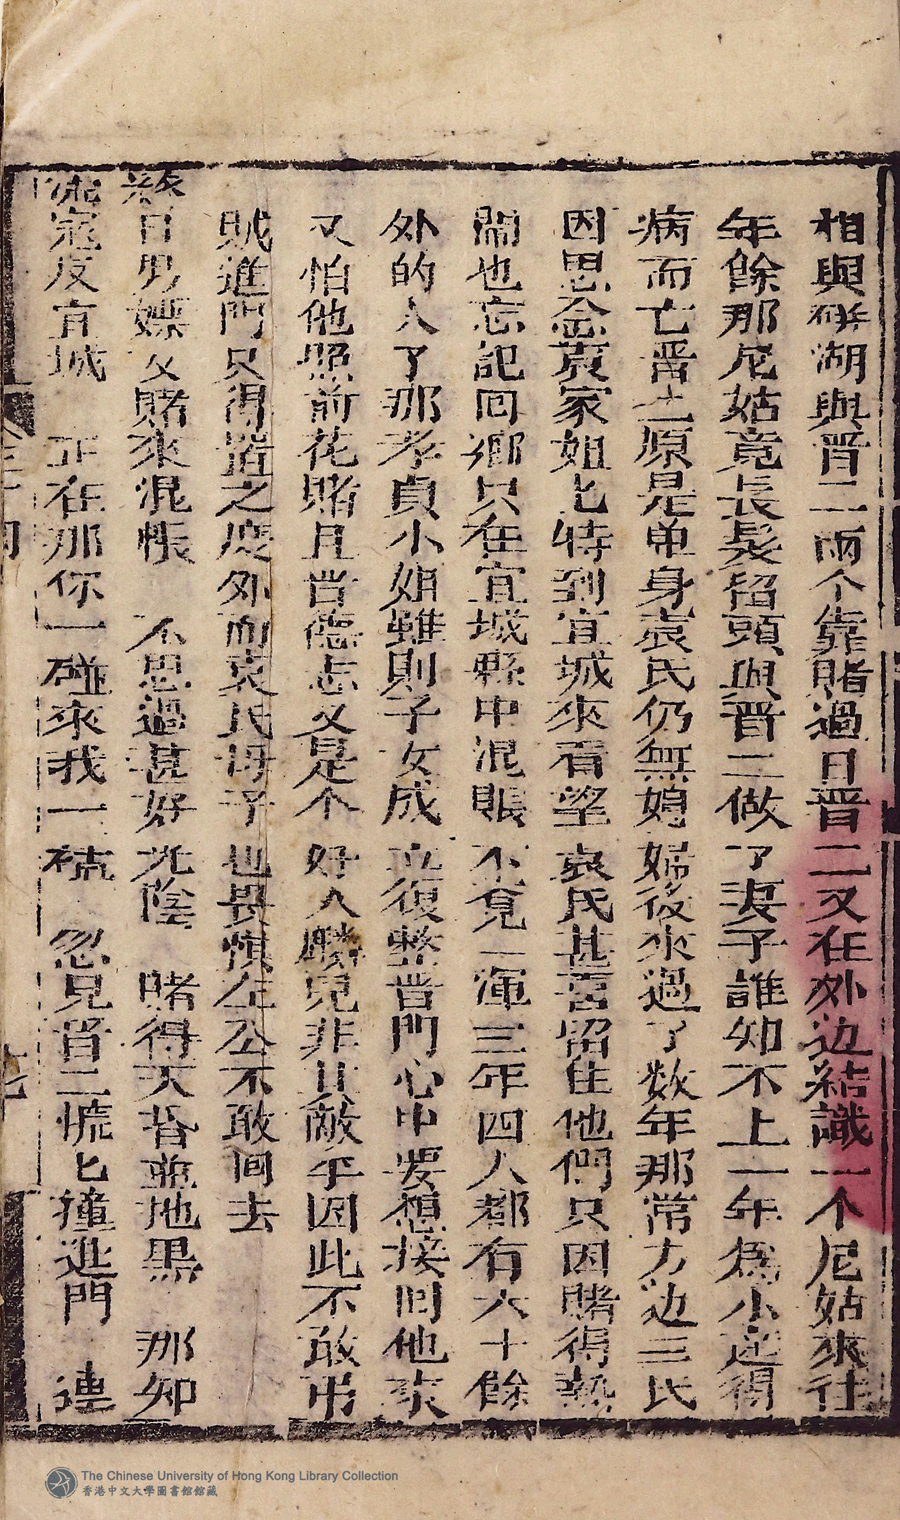 相與硚湖與晋二兩个靠賭過日晋二又在外边結識一个尼姑來往
年餘那尼姑竟長髮留頭與晋二做了妻子誰知不上一年為小產得
病而亡晋二原是单身袁氏仍無媳婦後來過了数年那常方边三氏
因思念袁家姐匕特到宜城來看望袁氏甚喜留住他們只因賭得熱
鬧也忘記回鄉只在宜城縣中混賬不覓一渾三年四人都有六十餘
外的人了那孝貞小姐雖則子女成立復整晋門心中要想接囘他來
又怕他照前花賭且晋德志又是个好人麟兒非其敵乎因此不敢弔
賊進門只得置之度外而袁氏母子也畏惧左公不敢回去
終日男嫖女賭來混帳 不思過甚好光陰 賭得天昏並地黑 那知
流寇反宜城 正在那你一碰來我一 忽見晋二慌匕撞進門 連
The Chinese University of Hong Kong Library Collection
香港中文大學圖書館館藏